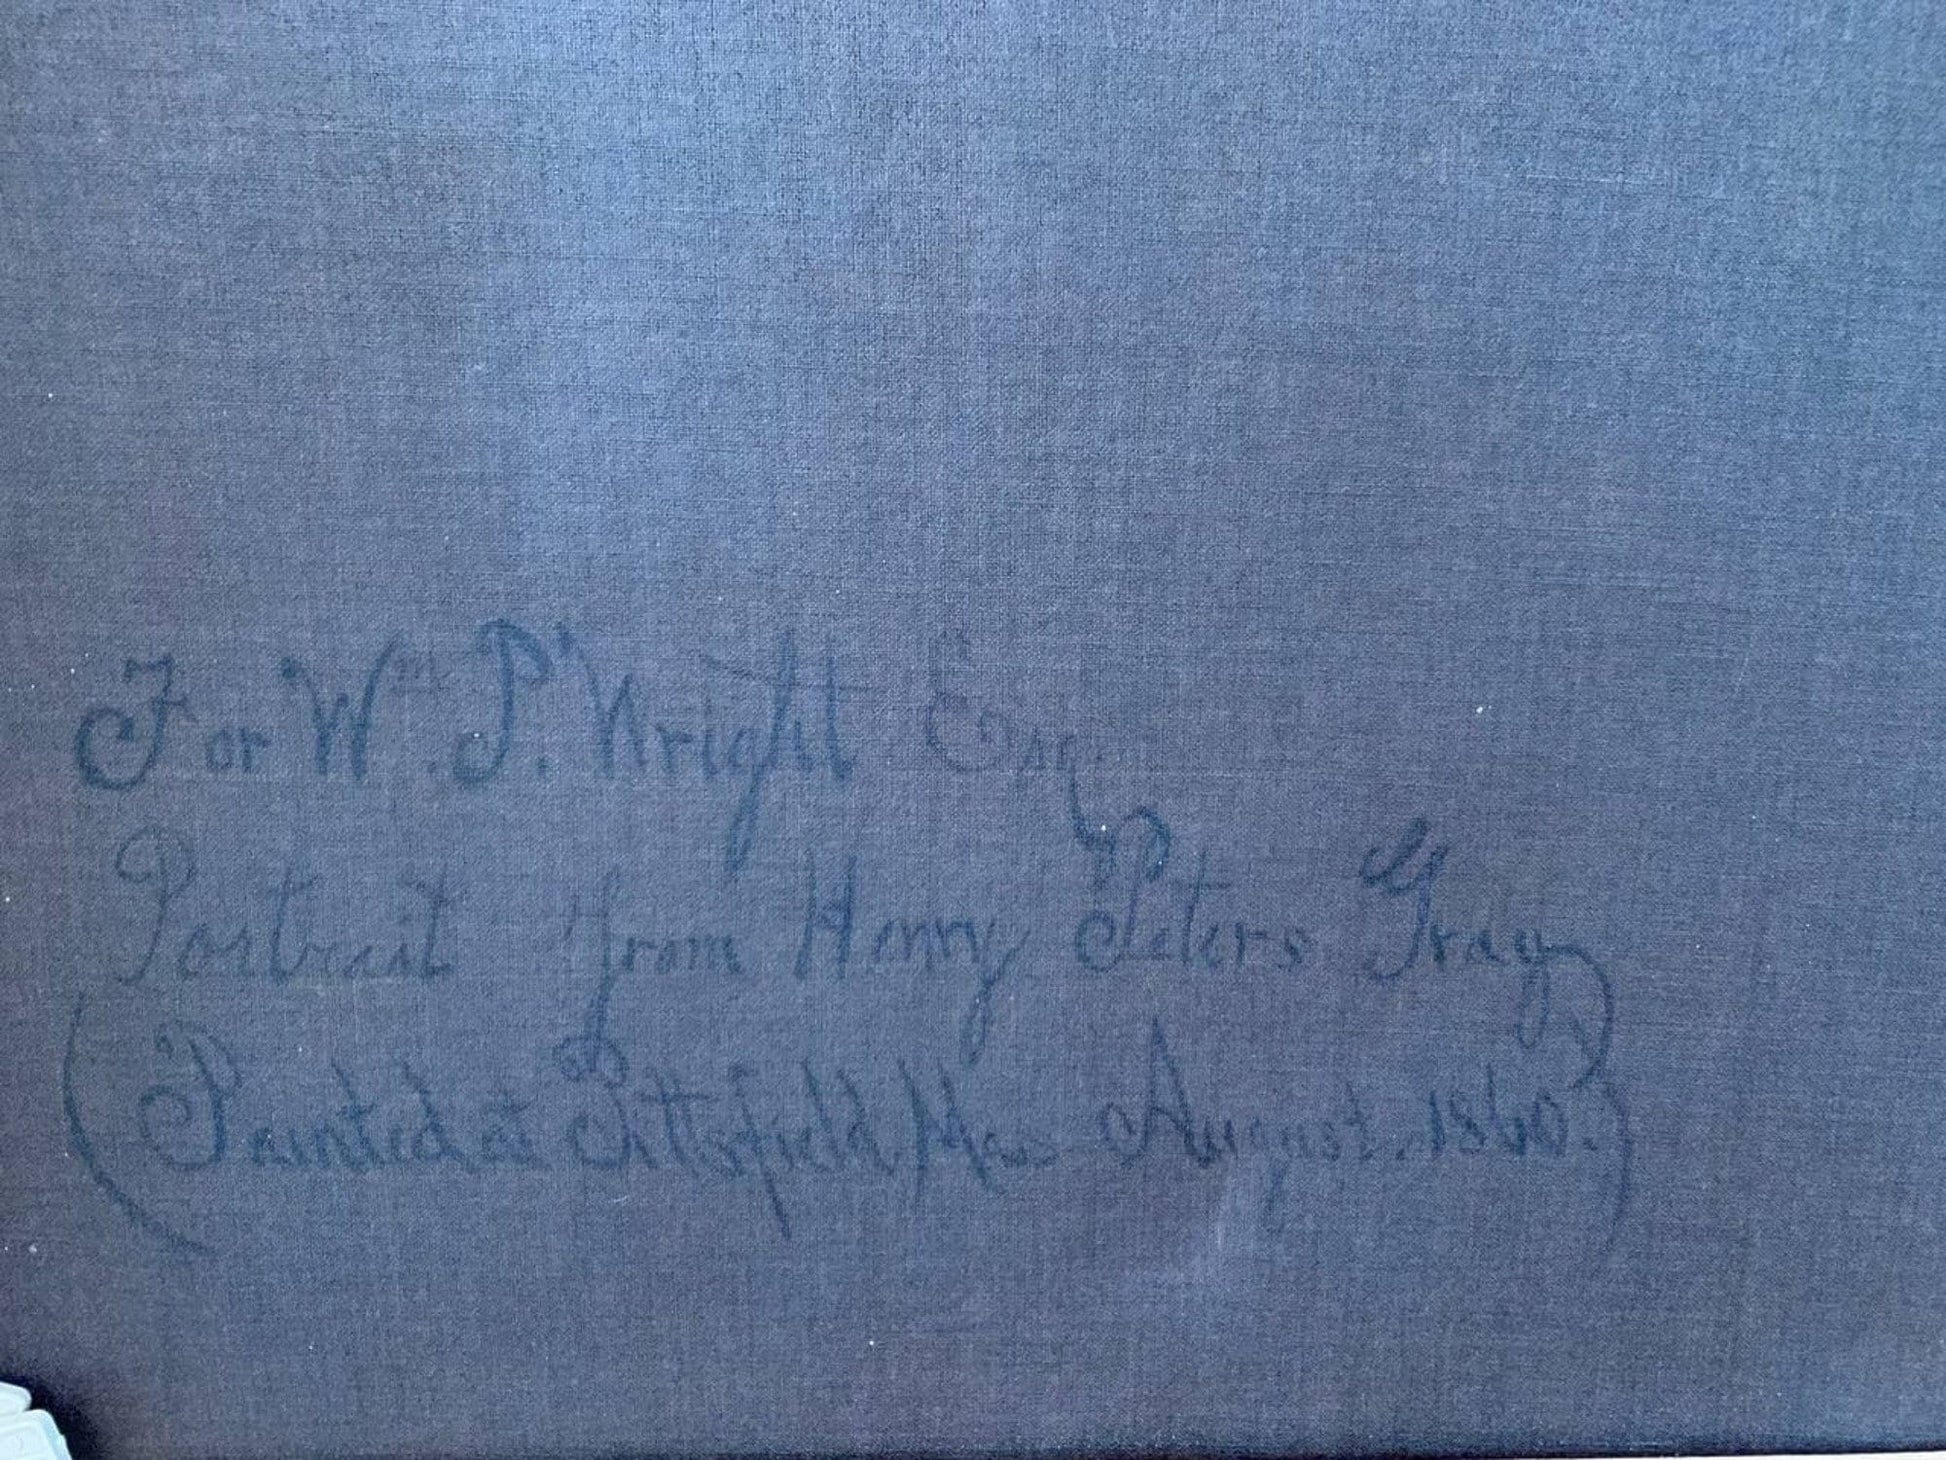 For Wm. P. Wright Esq.
Portrait from Henry Peters Gray
(Painted at Pittsfield Mass August. 1860.)